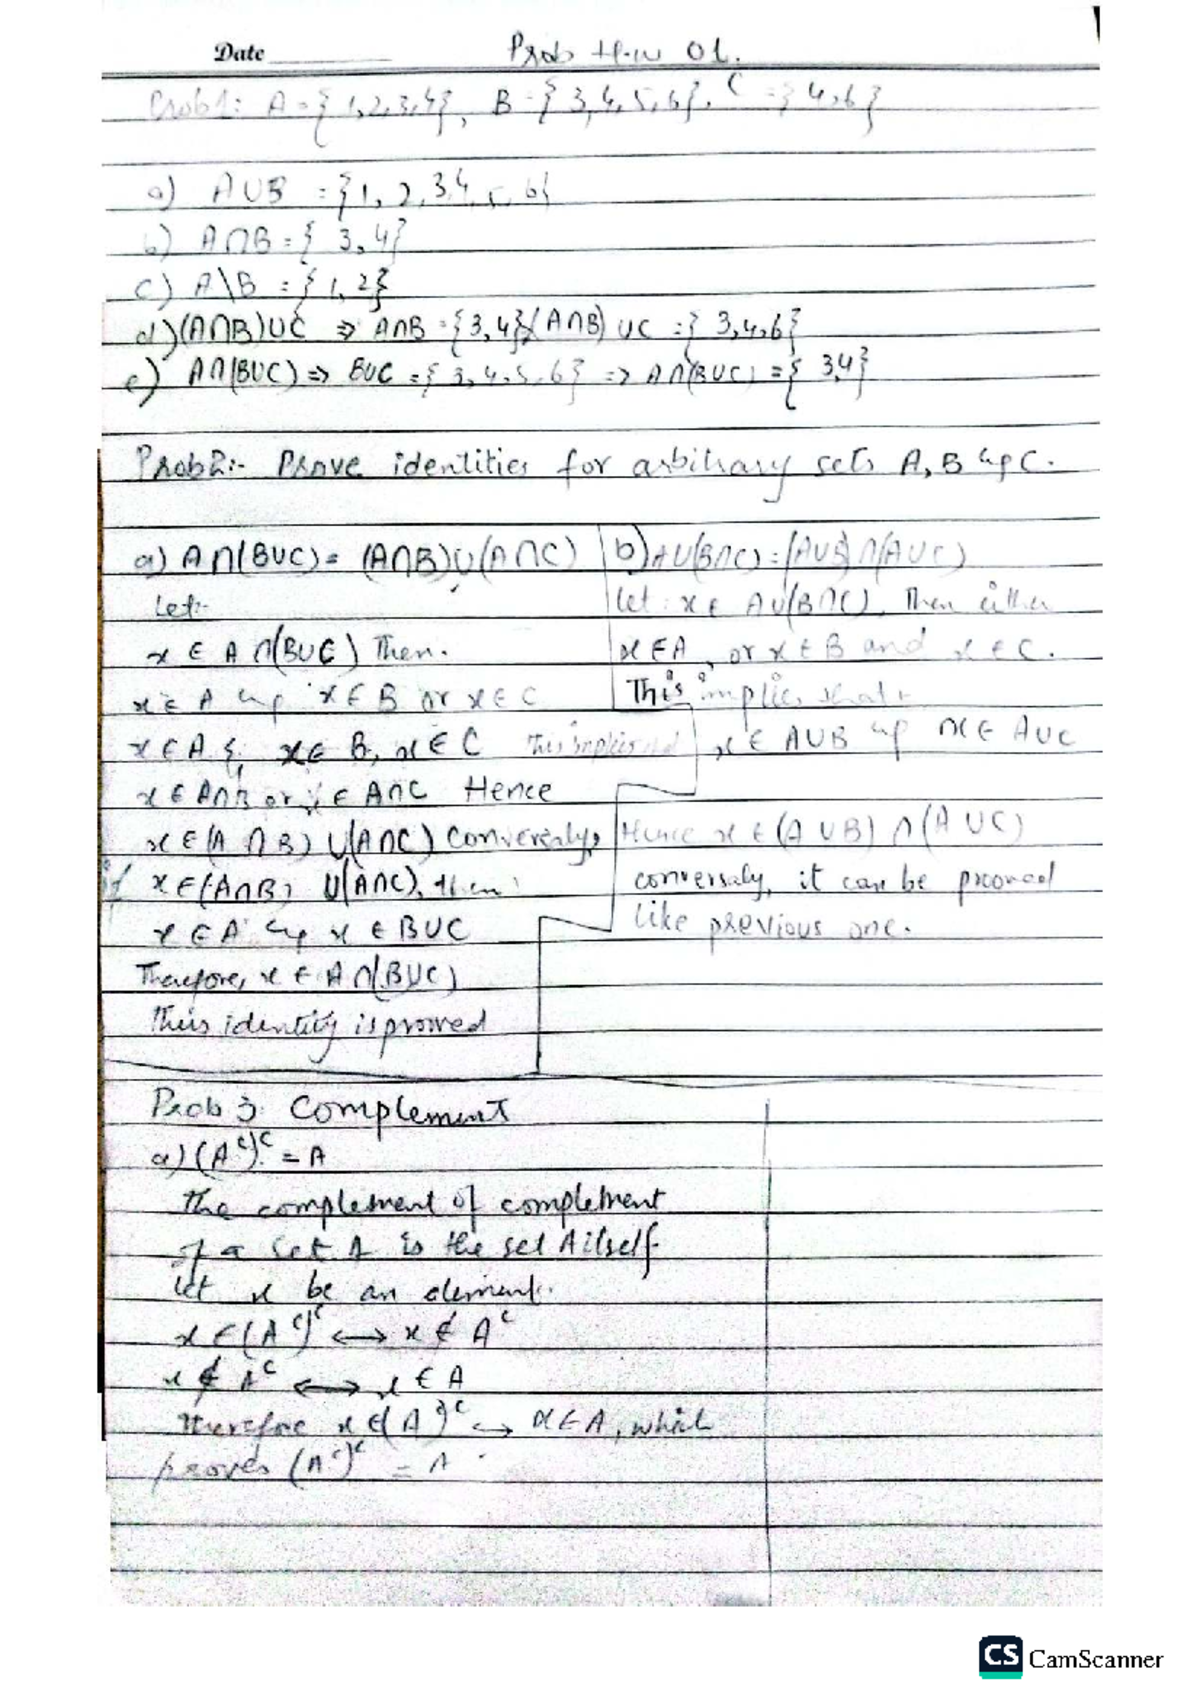 Date
Prob H.w 01.
Prob1: A = {1,2,3,4}, B = {3,4,5,6}, C = {4,6}
a) A∪B = {1, 2, 3,4, 5, 6}
b) A∩B = {3,4}
c) A\B = {1,2}
d) (A∩B)∪C ⇒ A∩B = {3,4} (A∩B) ∪C = {3,4,6}
e) A∩(B∪C) ⇒ B∪C = {3,4,5,6} ⇒ A∩(B∪C) = {3,4}
Prob2:- Prove identities for arbitrary sets A, B & C.
a) A∩(B∪C) = (A∩B)∪(A∩C)
Let:
x ∈ A∩(B∪C) Then.
x ∈ A & x ∈ B or x ∈ C
x ∈ A & x ∈ B, x ∈ C This implies
x ∈ A∩B or x ∈ A∩C Hence
x ∈ (A∩B) ∪(A∩C) Conversely,
if x ∈ (A∩B) ∪(A∩C), then
x ∈ A & x ∈ B∪C
Therefore, x ∈ A∩(B∪C)
This identity is proved
b) A∪(B∩C) = (A∪B)∩(A∪C)
let x ∈ A∪(B∩C), Then either
x ∈ A, or x ∈ B and x ∈ C.
This implies that
x ∈ A∪B & x ∈ A∪C
Hence x ∈ (A∪B) ∩(A∪C)
conversaly, it can be prooved
like previous one.
Prob 3: Complements
a) (Aᶜ)ᶜ = A
The complement of complement
of a set A is the set A itself.
let x be an element.
x ∈ (Aᶜ)ᶜ ⟷ x ∉ Aᶜ
x ∉ Aᶜ ⟷ x ∈ A
Therefore x ∈ (Aᶜ)ᶜ → x ∈ A, which
proves (Aᶜ)ᶜ = A
CS CamScanner